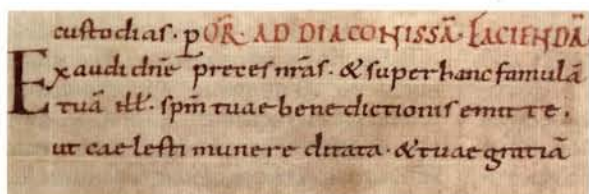 custodias · ꝑ OR̄ · AD DIACONISSĀ · FACIENDĀ
Exaudi dn̄e preces nr̄as · & super hanc famulā
tuā ill̄ · sp̄m tuae benedictionis emitte,
ut caelesti munere ditata · & tuae gratiā